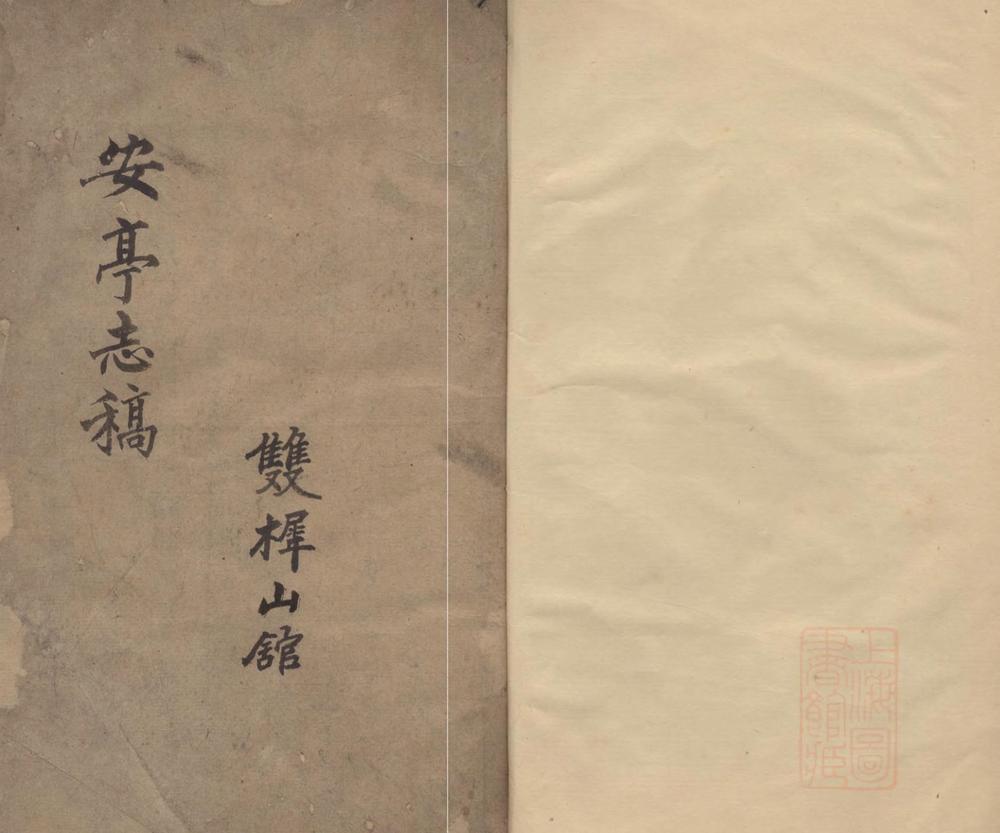 安亭志稿
雙樨山館
上海圖
書館藏